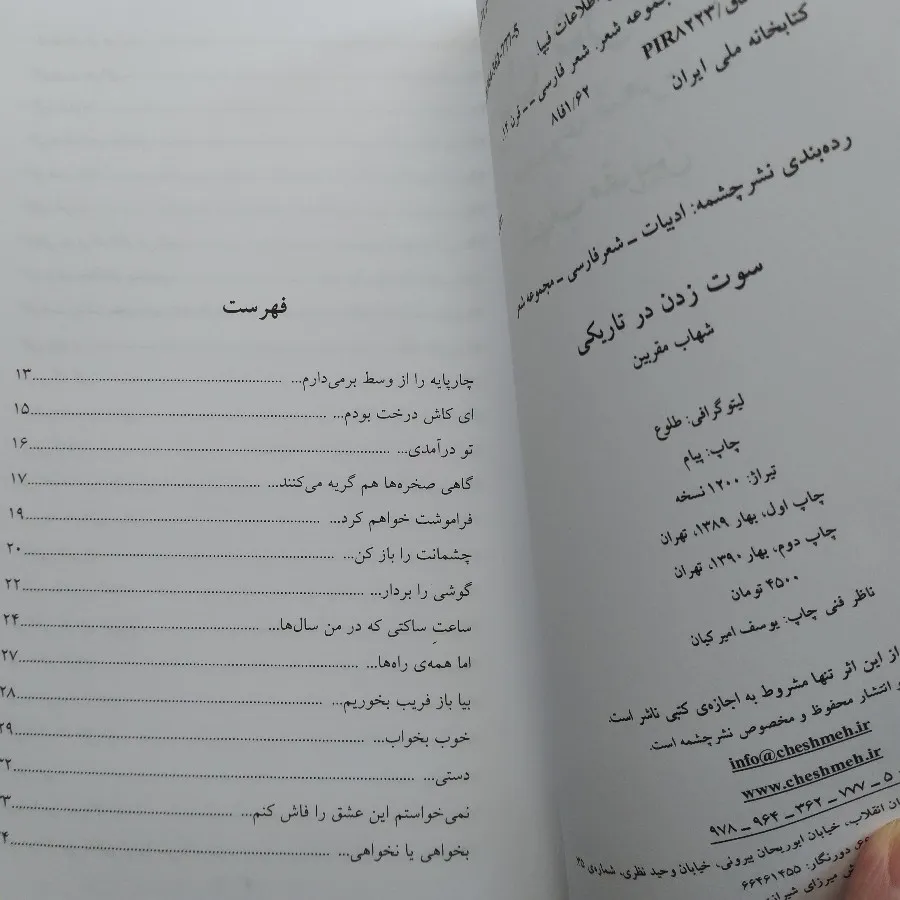 اطلاعات فیپا.
مجموعه شعر. شعر فارسی -- قرن ۱۴.
PIR۸۲۲۳/
۸فا۱/۶۲
کتابخانه ملی ایران
رده‌بندی نشرچشمه: ادبیات ـ شعرفارسی ـ مجموعه شعر
سوت زدن در تاریکی
شهاب مقربین
لیتوگرافی: طلوع
چاپ: پیام
تیراژ: ۱۲۰۰ نسخه
چاپ اول، بهار ۱۳۸۹، تهران
چاپ دوم، بهار ۱۳۹۰، تهران
۴۵۰۰ تومان
ناظر فنی چاپ: یوسف امیرکیان
از این اثر تنها مشروط به اجازه‌ی کتبی ناشر است.
و انتشار محفوظ و مخصوص نشرچشمه است.
info@cheshmeh.ir
www.cheshmeh.ir
۹۷۸ ـ ۹۶۴ ـ ۳۶۲ ـ ۷۷۷ ـ ۵
انقلاب، خیابان ابوریحان بیرونی، خیابان وحید نظری، شماره‌ی ۳۵
دورنگار: ۶۶۴۶۱۴۵۵
میرزای شیرازی
فهرست
چارپایه را از وسط برمی‌دارم... ۱۳
ای کاش درخت بودم... ۱۵
تو درآمدی... ۱۶
گاهی صخره‌ها هم گریه می‌کنند... ۱۷
فراموشت خواهم کرد... ۱۹
چشمانت را باز کن... ۲۰
گوشی را بردار... ۲۲
ساعتِ ساکتی که در من سال‌ها... ۲۴
اما همه‌ی راه‌ها... ۲۷
بیا باز فریب بخوریم... ۲۸
خوب بخواب... ۲۹
دستی... ۳۲
نمی‌خواستم این عشق را فاش کنم...
بخواهی یا نخواهی...